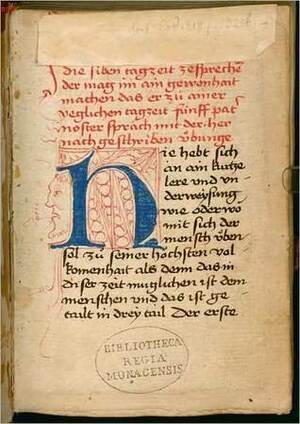 die siben tagzeit zespreche͂
der mag im ain gewonhait
machen das er zu ainer
yeglichen tagzeit fünff pat͛
noster spräch mit der her
nach geschriben übunge
Hie hebt sich
an ain kurtze
lere und un
derweysung
wie oder wo
mit sich der
mensch üben
sol zu seiner höchsten vol
komenhait als denn das in
diser zeit muglichen ist dem
menschen und das ist ge
tailt in drey tail Der erste
BIBLIOTHECA
REGIA
MONACENSIS